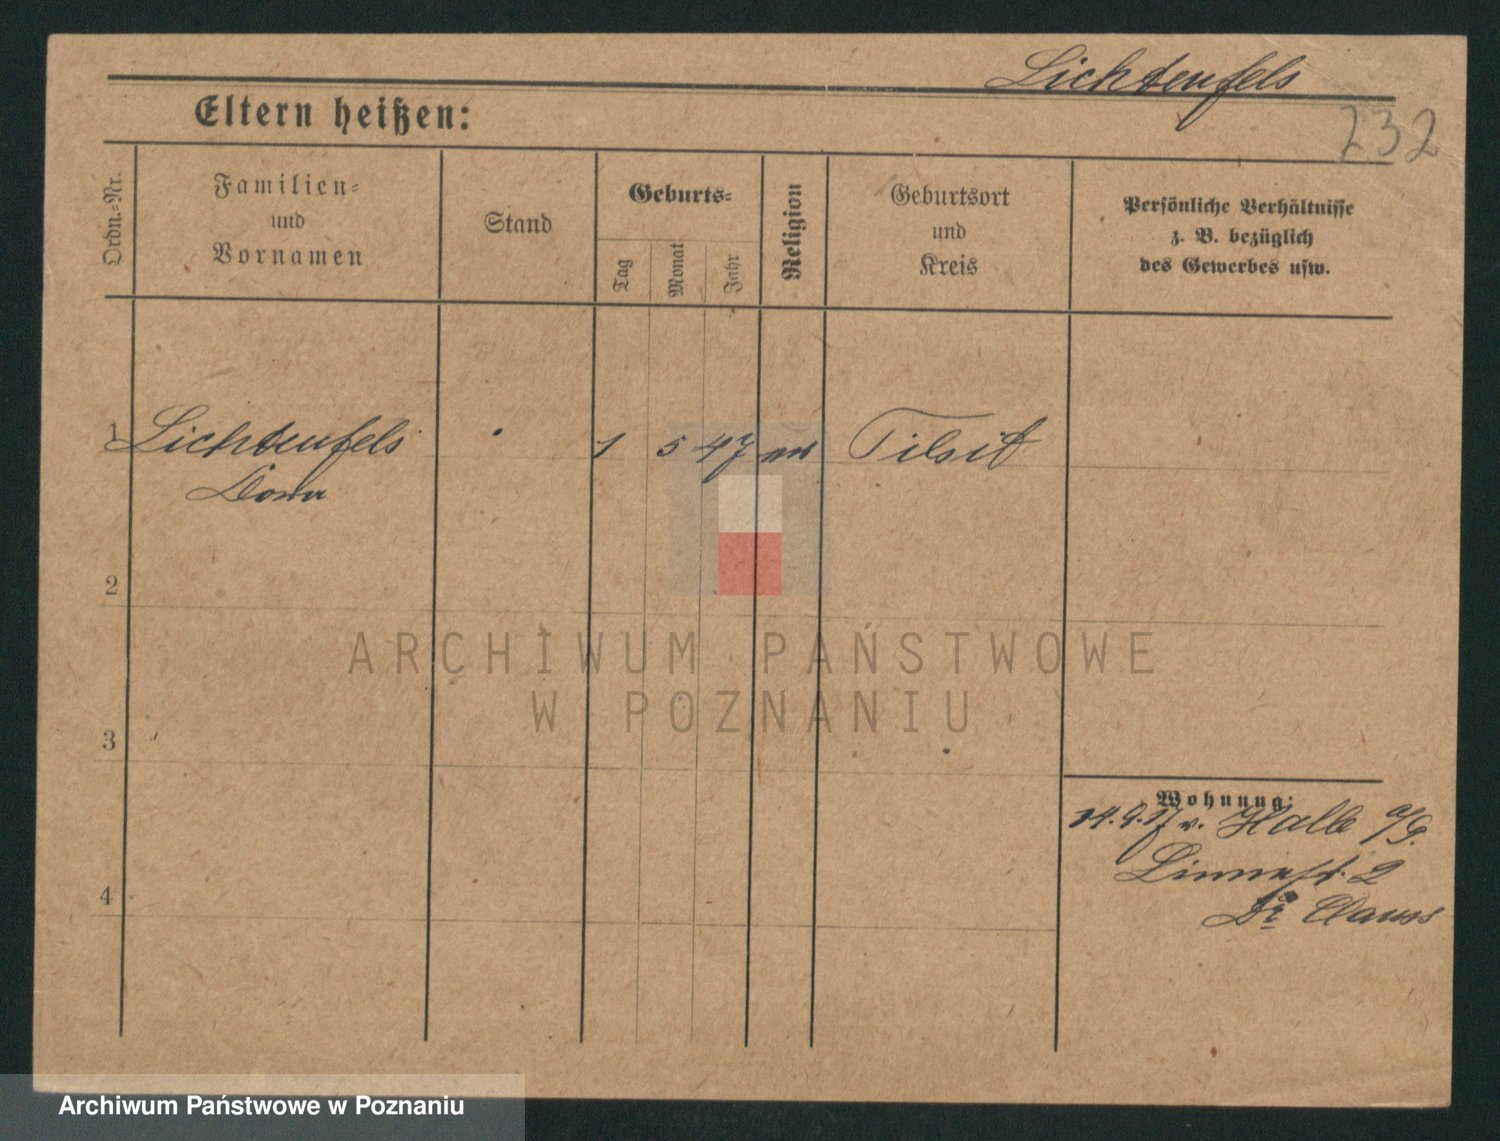 Lichtenfels
232
Eltern heißen:
Ordn.-Nr.
Familien-
und
Vornamen
Stand
Geburts-
Tag
Monat
Jahr
Religion
Geburtsort
und
Kreis
Persönliche Verhältnisse
z. B. bezüglich
des Gewerbes usw.
1 Lichtenfels 1 5 47 Tilsit
2
ARCHIWUM PAŃSTWOWE
W POZNANIU
3
Wohnung:
14.9.17 v. Halle a/S.
2
4
Dr Clauss
Archiwum Państwowe w Poznaniu